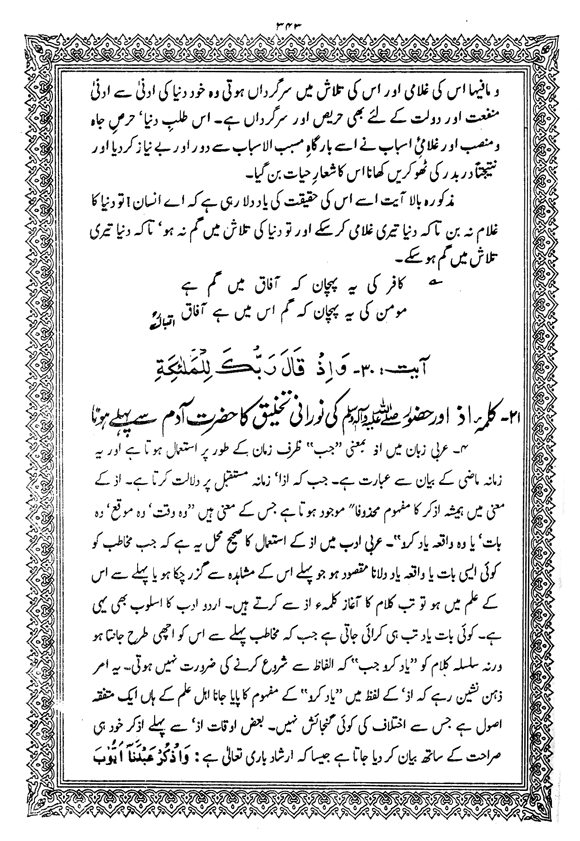 ۳۴۳
و مافیہا اس کی غلامی اور اس کی تلاش میں سرگرداں ہوتی وہ خود دنیا کی ادنیٰ سے ادنیٰ
منفعت اور دولت کے لئے بھی حریص اور سرگرداں ہے۔ اس طلبِ دنیا‘ حرصِ جاہ
و منصب اور غلامیٔ اسباب نے اسے بارگاہِ مسبب الاسباب سے دور اور بے نیاز کر دیا اور
نتیجتاً در بدر کی ٹھوکریں کھانا اس کا شعارِ حیات بن گیا۔
مذکورہ بالا آیت اسے اس کی حقیقت کی یاد دلا رہی ہے کہ اے انسان! تو دنیا کا
غلام نہ بن تاکہ دنیا تیری غلامی کر سکے اور تو دنیا کی تلاش میں گم نہ ہو‘ تاکہ دنیا تیری
تلاش میں گم ہو سکے۔
کافر کی یہ پہچان کہ آفاق میں گم ہے
مومن کی یہ پہچان کہ گم اس میں ہے آفاق اقبالؒ
آیت: ۳۰۔ وَاِذْ قَالَ رَبُّكَ لِلْمَلٰٓئِكَةِ
۲۱۔ کلمہٴ اذ اور حضور صلی اللہ علیہ وآلہ وسلم کی نورانی تخلیق کا حضرت آدم سے پہلے ہونا
۴۔ عربی زبان میں اذ بمعنی ”جب“ ظرف زمان کے طور پر استعمال ہوتا ہے اور یہ
زمانہ ماضی کے بیان سے عبارت ہے۔ جب کہ اذا‘ زمانہ مستقبل پر دلالت کرتا ہے۔ اذ کے
معنی میں ہمیشہ اذکر کا مفہوم محذوفاً موجود ہوتا ہے جس کے معنی ہیں ”وہ وقت‘ وہ موقع‘ وہ
بات‘ یا وہ واقعہ یاد کرو“۔ عربی ادب میں اذ کے استعمال کا صحیح محل یہ ہے کہ جب مخاطب کو
کوئی ایسی بات یا واقعہ یاد دلانا مقصود ہو جو پہلے اس کے مشاہدہ سے گزر چکا ہو یا پہلے سے اس
کے علم میں ہو تو تب کلام کا آغاز کلمہء اذ سے کرتے ہیں۔ اردو ادب کا اسلوب بھی یہی
ہے۔ کوئی بات یاد تب ہی کرائی جاتی ہے جب کہ مخاطب پہلے سے اس کو اچھی طرح جانتا ہو
ورنہ سلسلہ کلام کو ”یاد کرو جب“ کہ الفاظ سے شروع کرنے کی ضرورت نہیں ہوتی۔ یہ امر
ذہن نشین رہے کہ اذ‘ کے لفظ میں ”یاد کرو“ کے مفہوم کا پایا جانا اہل علم کے ہاں ایک متفقہ
اصول ہے جس سے اختلاف کی کوئی گنجائش نہیں۔ بعض اوقات اذ‘ سے پہلے اذکر خود ہی
صراحت کے ساتھ بیان کر دیا جاتا ہے جیسا کہ ارشاد باری تعالیٰ ہے : وَاذْكُرْ عَبْدَنَآ اَيُّوْبَ